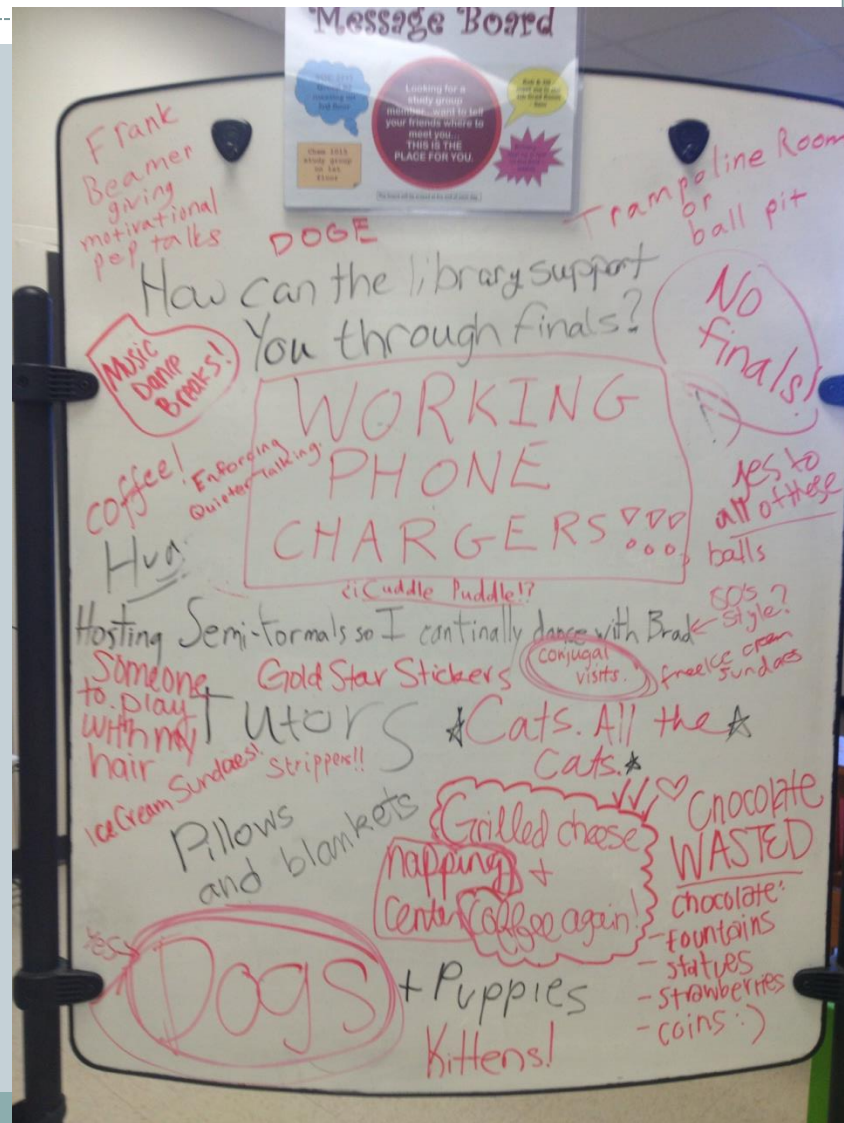 Message Board
Looking for a
study group
member...want to tell
your friends where to
meet you...
THIS IS THE
PLACE FOR YOU.
Chem 1015
study group
on 1st
floor
Frank
Beamer
giving
motivational
pep talks
DOGE
Trampoline Room
or
ball pit
How can the library support
You through finals?
No
finals!
Music
Dance
Breaks!
WORKING
PHONE
CHARGERS!!!
coffee!
Enforcing
Quieter talking.
yes to
all of these
balls
¿¡Cuddle Puddle!?
Hosting Semi-formals so I can finally dance with Brad
80's
style?
Someone
to play
with my
hair
Gold Star Stickers
conjugal
visits.
free ice cream
sundaes
Tutors
Cats. All the
Cats.
Strippers!!
Ice Cream Sundaes!
Pillows
and blankets
Grilled cheese
+
Coffee again!
napping
Center
Chocolate
WASTED
chocolate:
- fountains
- statues
- strawberries
- coins :)
yes
Dogs
+ Puppies
Kittens!